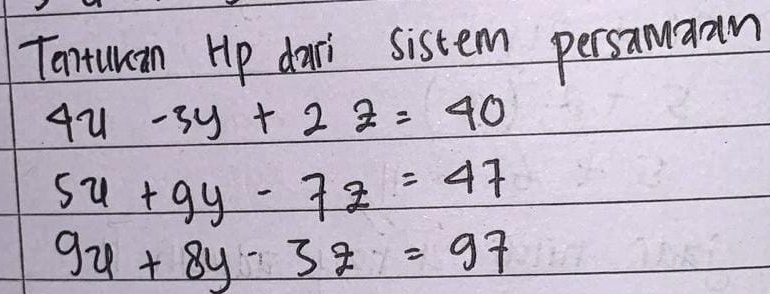 Tentukan Hp dari sistem persamaan
4x - 3y + 2z = 40
5x + 9y - 7z = 47
9x + 8y - 3z = 97